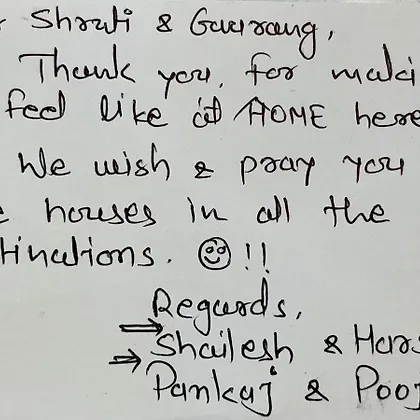 Shruti & Gaurang,
Thank you, for maki
feel like at HOME here
We wish & pray you
houses in all the
tinations. ☺!!
Regards,
⇒ Shailesh & Hars
⇒ Pankaj & Pooj